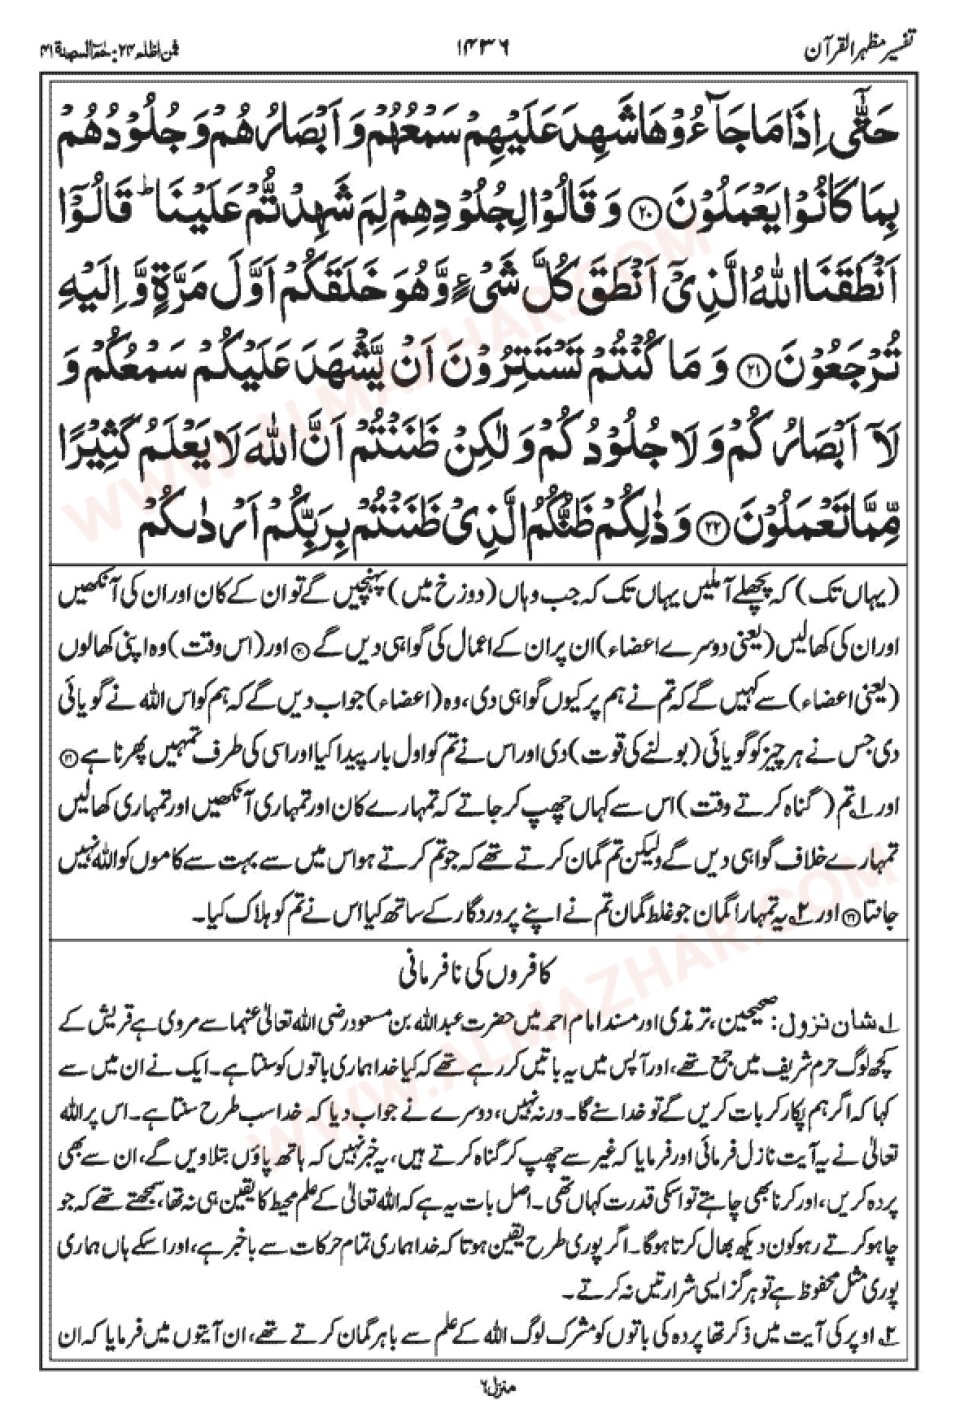 تفسیر مظہر القرآن
۱۴۳۶
فمن اظلم ۲۴: حٰمٓ السجدۃ ۴۱
حَتّٰۤى اِذَا مَا جَآءُوْهَا شَهِدَ عَلَيْهِمْ سَمْعُهُمْ وَ اَبْصَارُهُمْ وَ جُلُوْدُهُمْ
بِمَا كَانُوْا يَعْمَلُوْنَ ۝۲۰ وَ قَالُوْا لِجُلُوْدِهِمْ لِمَ شَهِدْتُّمْ عَلَيْنَا ؕ قَالُوْۤا
اَنْطَقَنَا اللّٰهُ الَّذِيْۤ اَنْطَقَ كُلَّ شَيْءٍ وَّ هُوَ خَلَقَكُمْ اَوَّلَ مَرَّةٍ وَّ اِلَيْهِ
تُرْجَعُوْنَ ۝۲۱ وَ مَا كُنْتُمْ تَسْتَتِرُوْنَ اَنْ يَّشْهَدَ عَلَيْكُمْ سَمْعُكُمْ وَ
لَاۤ اَبْصَارُكُمْ وَ لَا جُلُوْدُكُمْ وَ لٰكِنْ ظَنَنْتُمْ اَنَّ اللّٰهَ لَا يَعْلَمُ كَثِيْرًا
مِّمَّا تَعْمَلُوْنَ ۝۲۲ وَ ذٰلِكُمْ ظَنُّكُمُ الَّذِيْ ظَنَنْتُمْ بِرَبِّكُمْ اَرْدٰىكُمْ
(یہاں تک) کہ پچھلے آملیں یہاں تک کہ جب وہاں (دوزخ میں) پہنچیں گے تو ان کے کان اور ان کی آنکھیں
اور ان کی کھالیں (یعنی دوسرے اعضاء) ان پر ان کے اعمال کی گواہی دیں گے ۝۲۰ اور (اس وقت) وہ اپنی کھالوں
(یعنی اعضاء) سے کہیں گے کہ تم نے ہم پر کیوں گواہی دی، وہ (اعضاء) جواب دیں گے کہ ہم کو اس اللہ نے گویائی
دی جس نے ہر چیز کو گویائی (بولنے کی قوت) دی اور اس نے تم کو اول بار پیدا کیا اور اسی کی طرف تمہیں پھرنا ہے ۝۲۱
اور ۱؎ تم (گناہ کرتے وقت) اس سے کہاں چھپ کر جاتے کہ تمہارے کان اور تمہاری آنکھیں اور تمہاری کھالیں
تمہارے خلاف گواہی دیں گے ولیکن تم گمان کرتے تھے کہ جو تم کرتے ہو اس میں سے بہت سے کاموں کو اللہ نہیں
جانتا ۝۲۲ اور ۲؎ یہ تمہارا گمان جو غلط گمان تم نے اپنے پروردگار کے ساتھ کیا اس نے تم کو ہلاک کیا۔
کافروں کی نافرمانی
۱؎ شان نزول: صحیحین، ترمذی اور مسند امام احمد میں حضرت عبداللہ بن مسعود رضی اللہ تعالیٰ عنہما سے مروی ہے قریش کے
کچھ لوگ حرم شریف میں جمع تھے، اور آپس میں یہ باتیں کر رہے تھے کہ کیا خدا ہماری باتوں کو سنتا ہے۔ ایک نے ان میں سے
کہا کہ اگر ہم پکار کر بات کریں گے تو خدا سنے گا۔ ورنہ نہیں، دوسرے نے جواب دیا کہ خدا سب طرح سنتا ہے۔ اس پر اللہ
تعالیٰ نے یہ آیت نازل فرمائی اور فرمایا کہ غیر سے چھپ کر گناہ کرتے ہیں، یہ خبر نہیں کہ ہاتھ پاؤں بتلاویں گے، ان سے بھی
پردہ کریں، اور کرنا بھی چاہتے تو اسکی قدرت کہاں تھی۔ اصل بات یہ ہے کہ اللہ تعالیٰ کے علم محیط کا یقین ہی نہ تھا، سمجھتے تھے کہ جو
چاہو کرتے رہو کون دیکھ بھال کرتا ہوگا۔ اگر پوری طرح یقین ہوتا کہ خدا ہماری تمام حرکات سے باخبر ہے، اور اسکے ہاں ہماری
پوری مثل محفوظ ہے تو ہرگز ایسی شرارتیں نہ کرتے۔
۲؎ اوپر کی آیت میں ذکر تھا پردہ کی باتوں کو مشرک لوگ اللہ کے علم سے باہر گمان کرتے تھے، ان آیتوں میں فرمایا کہ ان
منزل ۶
WWW.ALMAZHAR.COM
WWW.ALMAZHAR.COM